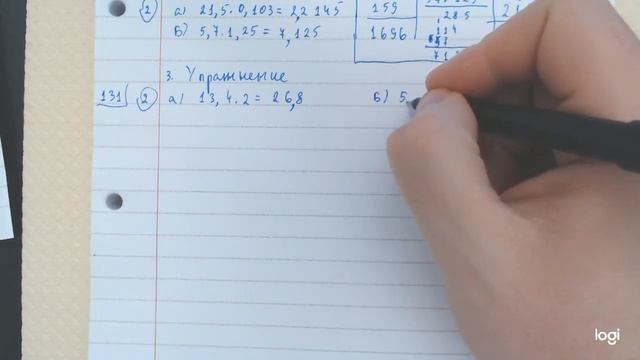 2 а) 21,5.0,103= 2,2145
Б) 5,7.1,25 = 7,125
159
1696
3. Упражнение
131 2 а) 13,4.2 = 26,8 Б) 5,
logi